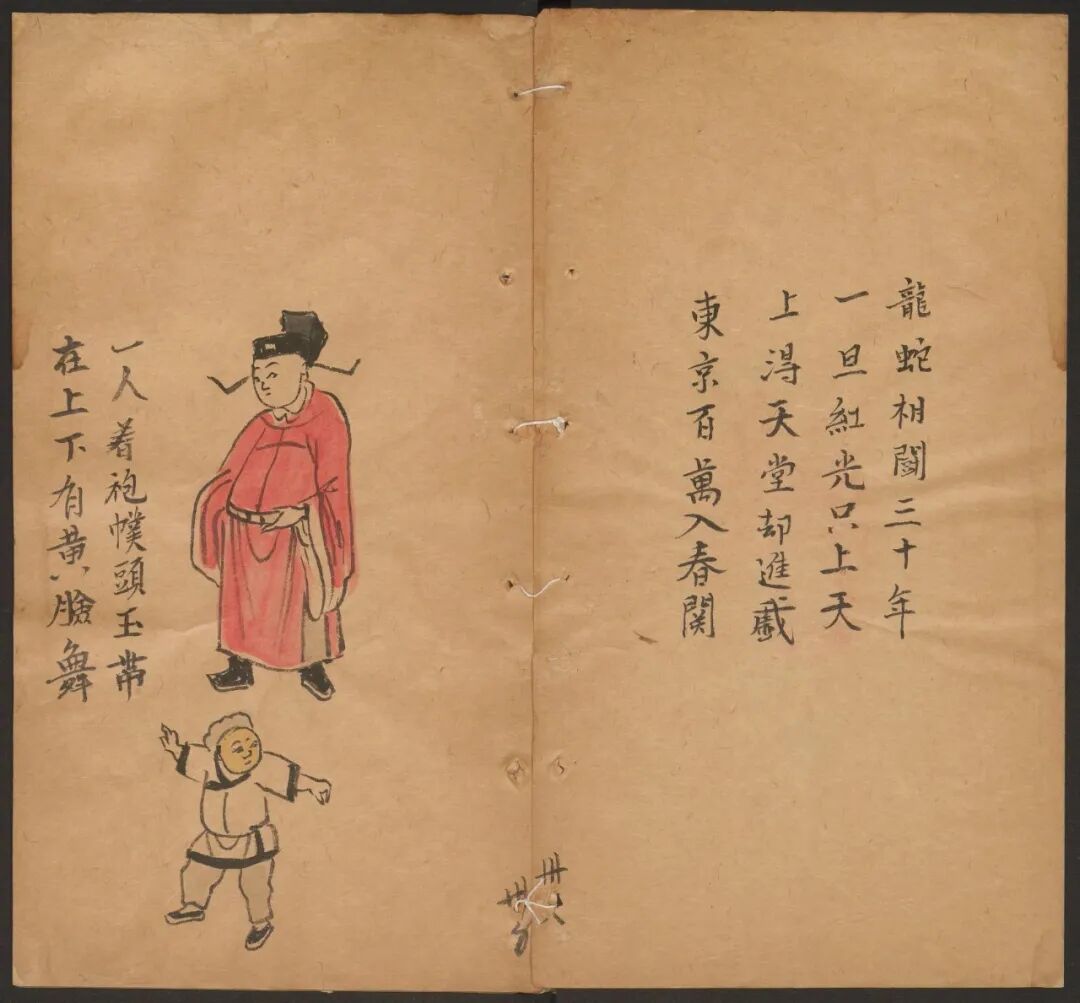 龍蛇相閗三十年
一旦紅光只上天
上淂天堂却進戱
東京百萬入春関
一人着袍幞頭玉帶
在上下有黄八臉舞
卅六
卅